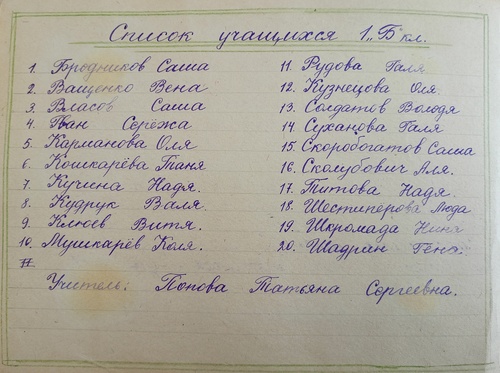 Список учащихся 1„Б" кл.
1. Бродников Саша
2. Ващенко Вена
3. Власов Саша
4. Ган Серёжа
5. Карманова Оля
6. Кошкарёва Таня
7. Кучина Надя.
8. Кудрук Валя
9. Клюев Витя.
10. Мушкарёв Коля.
11. Рудова Галя
12. Кузнецова Оля
13. Солдатов Володя
14. Суханова Галя
15. Скоробогатов Саша
16. Сколубович Аля.
17. Титова Надя.
18. Шестипёрова Люда
19. Шкромада Нина
20. Шадрин Гена
Учитель: Попова Татьяна Сергеевна.